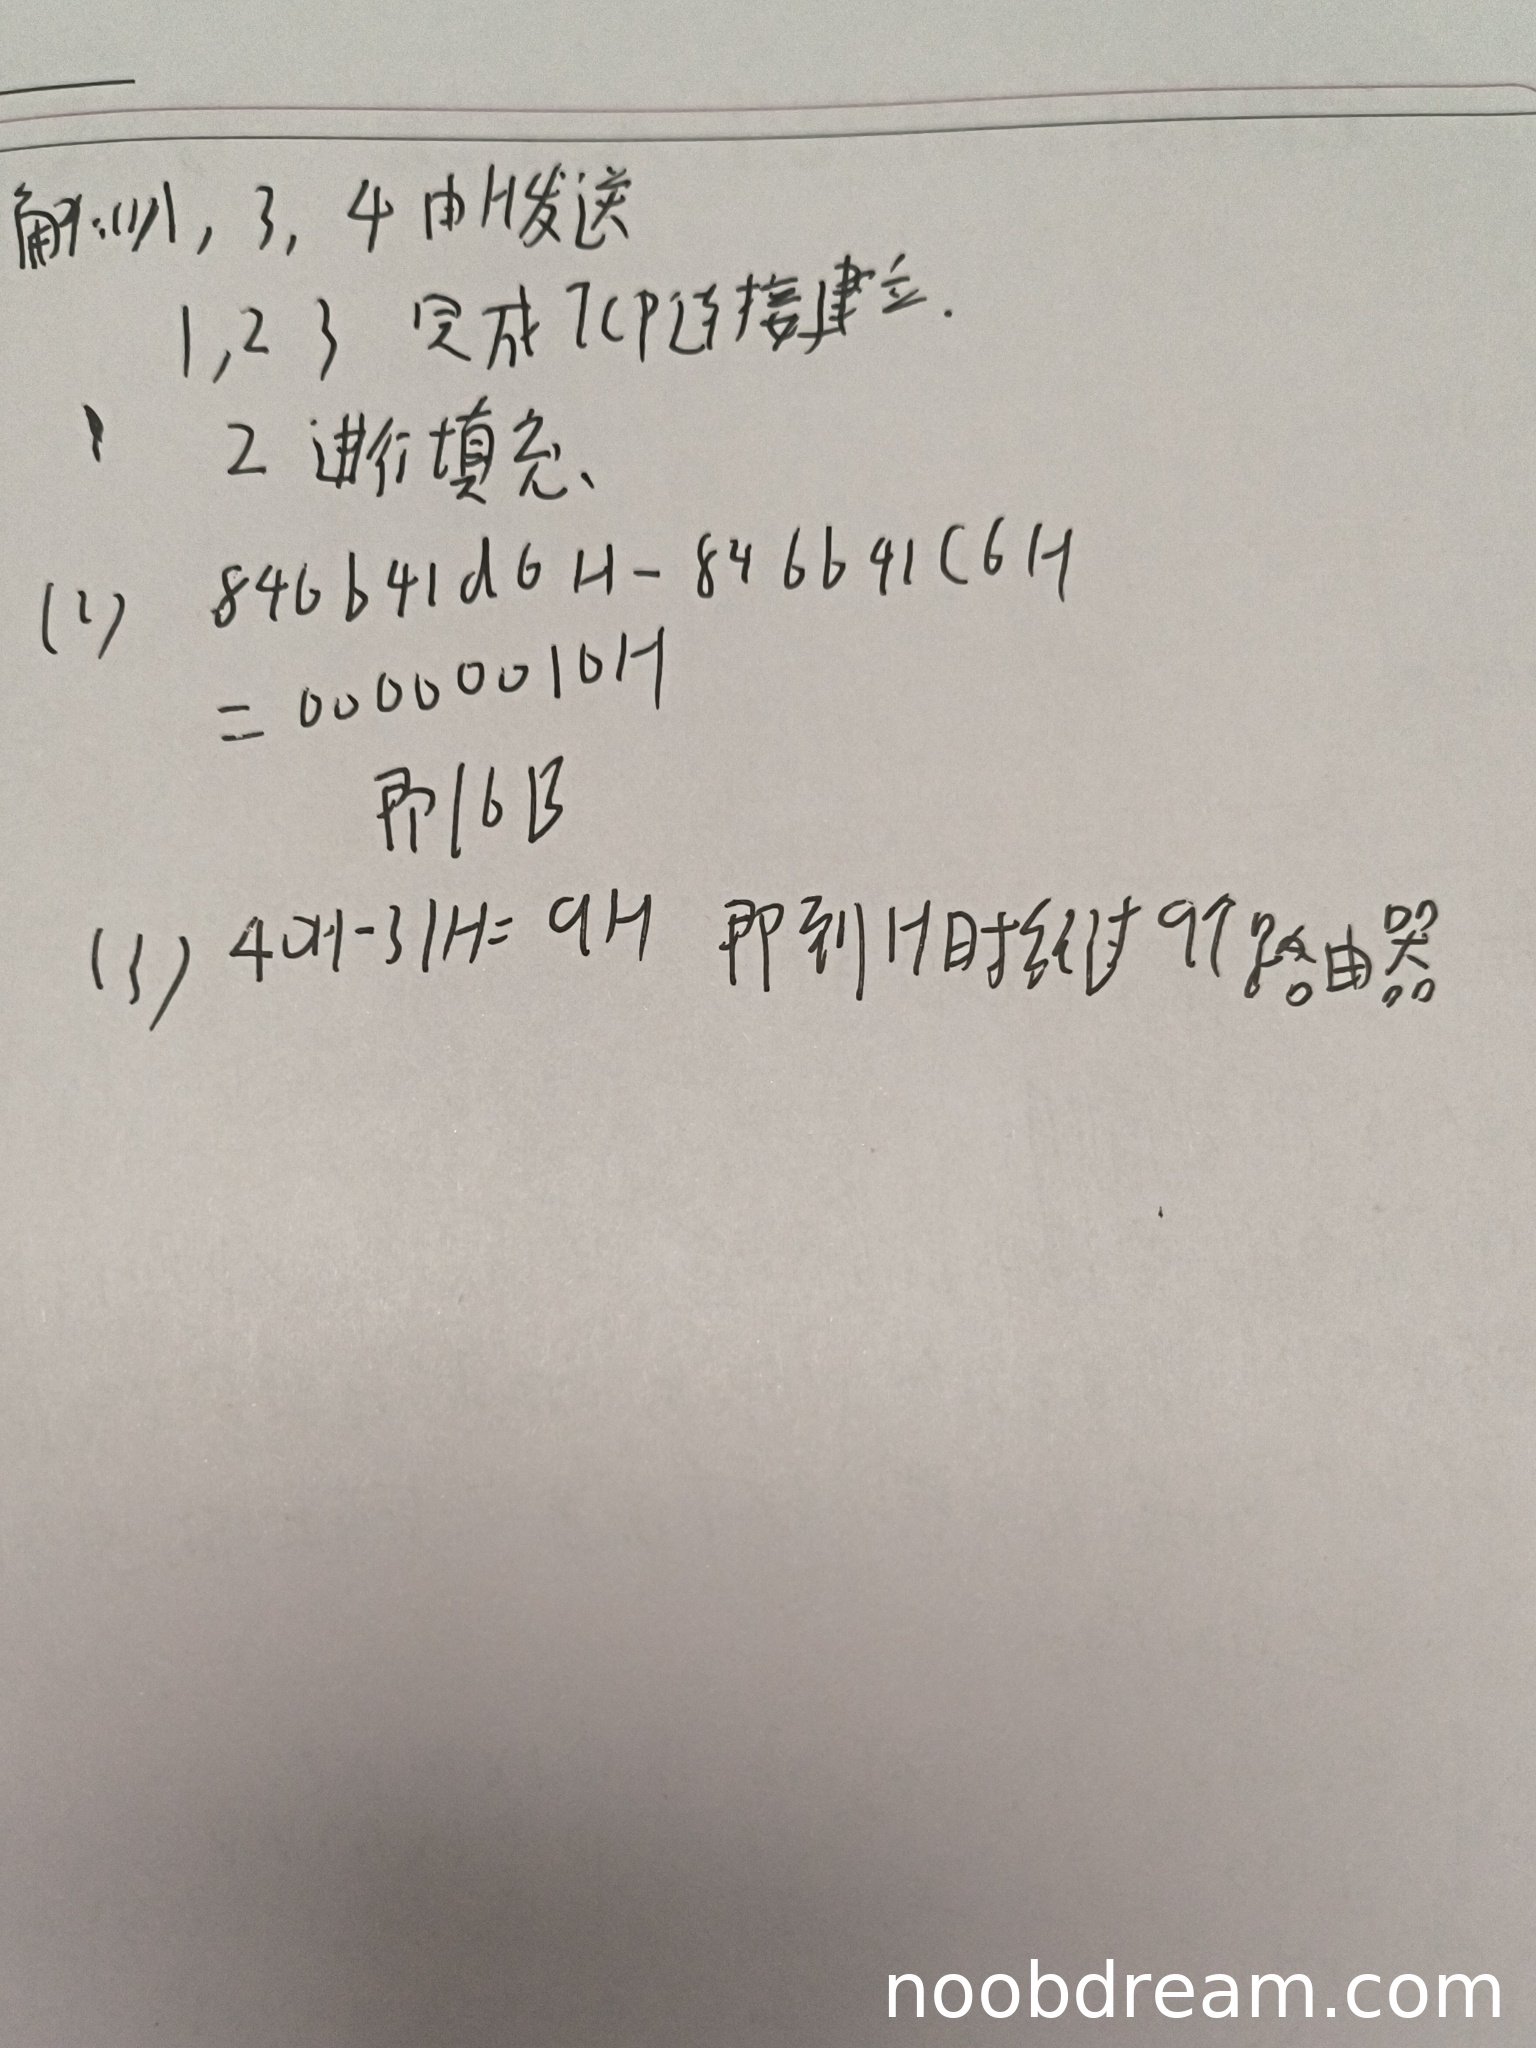 解:(1)1, 3, 4 由H发送
1,2 3 完成TCP连接建立.
2 进行填充、
(2) 846b41d6H-846b41C6H
=00000010H
即16B
(3) 40H-31H=9H 即到H时经过9个路由器
noobdream.com